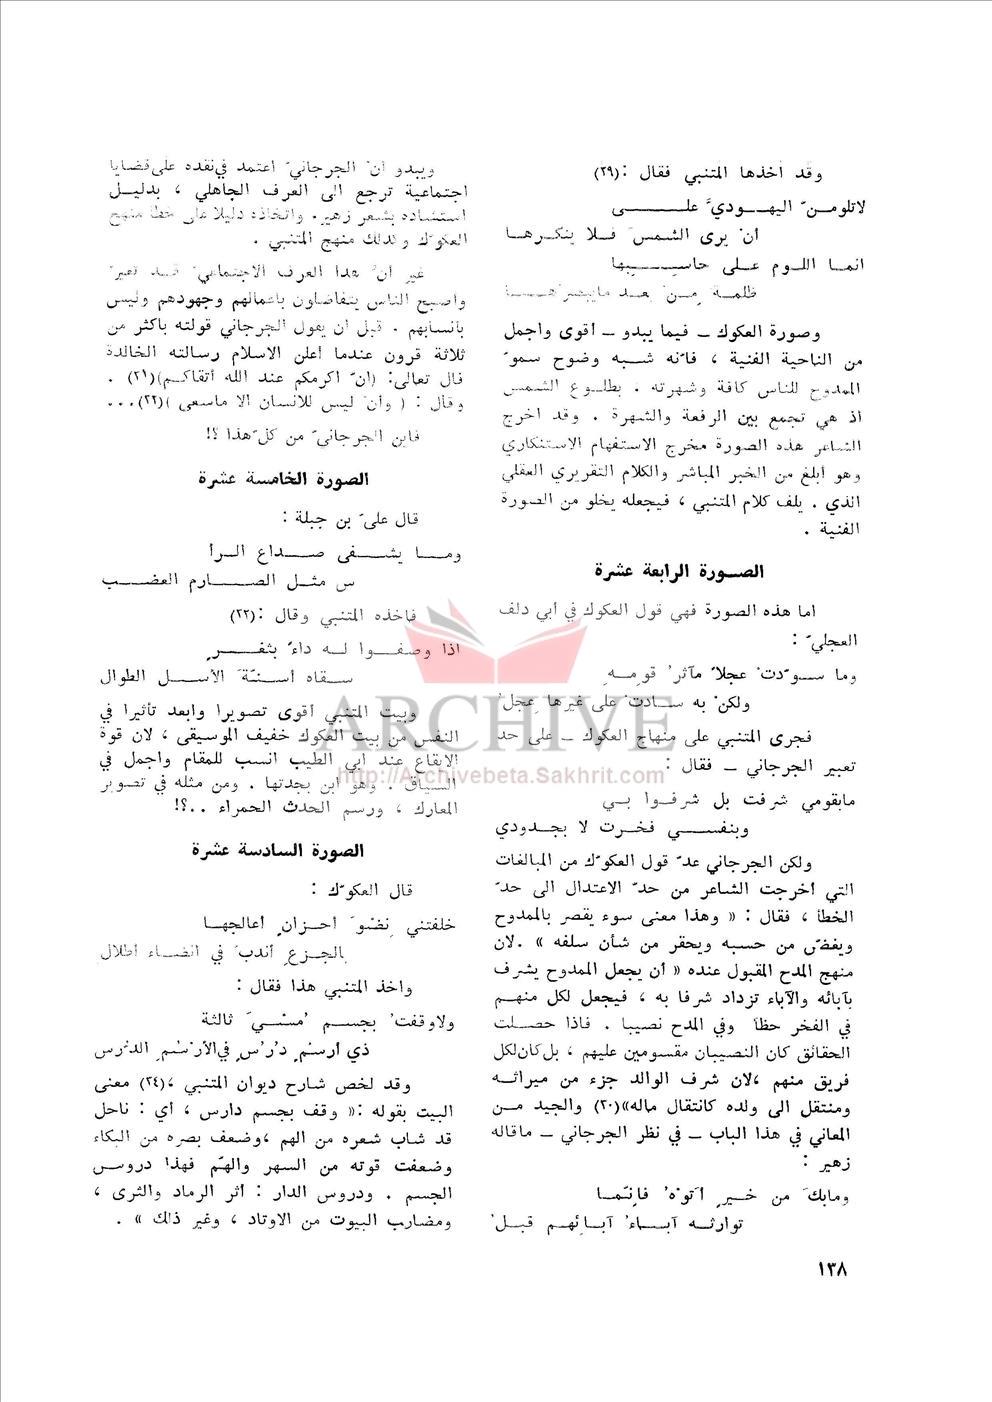 وقد أخذها المتنبي فقال : (٢٩)
لاتلومن اليهودي على
أن يرى الشمس فلا ينكرها
انما اللوم على حاسبها
ظلمة من بعد مايبصرها
وصورة العكوك ــ فيما يبدو ــ أقوى وأجمل
من الناحية الفنية ، فانه شبه وضوح سمو
الممدوح للناس كافة وشهرته . بطلوع الشمس
اذ هي تجمع بين الرفعة والشهرة . وقد أخرج
الشاعر هذه الصورة مخرج الاستفهام الاستنكاري
وهو أبلغ من الخبر المباشر والكلام التقريري العقلي
الذي . يلف كلام المتنبي ، فيجعله يخلو من الصورة
الفنية .
الصورة الرابعة عشرة
اما هذه الصورة فهي قول العكوك في أبي دلف
العجليّ :
وما سوّدت عجلاً مآثر قومه
ولكن به سادت على غيرها عجل
فجرى المتنبي على منهاج العكوك ــ على حد
تعبير الجرجاني ــ فقال :
مابقومي شرفت بل شرفوا بي
وبنفسي فخرت لا بجدودي
ولكن الجرجاني عدّ قول العكوّك من المبالغات
التي أخرجت الشاعر من حدّ الاعتدال الى حدّ
الخطأ ، فقال : « وهذا معنى سوء يقصر بالممدوح
ويغضّ من حسبه ويحقر من شأن سلفه » . لان
منهج المدح المقبول عنده « أن يجعل الممدوح يشرف
بآبائه والآباء تزداد شرفا به ، فيجعل لكل منهم
في الفخر حظاً وفي المدح نصيبا . فاذا حصلت
الحقائق كان النصيبان مقسومين عليهم ، بل كان لكل
فريق منهم ،لان شرف الوالد جزء من ميراثه
ومنتقل الى ولده كانتقال ماله»(٣٠) والجيد من
المعاني في هذا الباب ــ في نظر الجرجاني ــ ماقاله
زهير :
ومابك من خير أتوه فإنّما
توارثه آباء آبائهم قبل
ويبدو أن الجرجانيّ اعتمد في نقده على قضايا
اجتماعية ترجع الى العرف الجاهلي ، بدليل
استشاده بشعر زهير. واتخاذه دليلا على خطأ منهج
العكوّك وكذلك منهج المتنبي .
غير أنّ هذا العرف الاجتماعي قد تغير
واصبح الناس يتفاضلون بأعمالهم وجهودهم وليس
بانسابهم . قبل أن يقول الجرجاني قولته بأكثر من
ثلاثة قرون عندما أعلن الاسلام رسالته الخالدة
قال تعالى: (انّ أكرمكم عند الله أتقاكم)(٣١) .
وقال : ( وأن ليس للانسان الا ماسعى )(٣٢)...
فاين الجرجانيّ من كلّ هذا ؟!
الصورة الخامسة عشرة
قال عليّ بن جبلة :
وما يشفى صداع الرأ
س مثل الصارم العضب
فاخذه المتنبي وقال : (٣٣)
اذا وصفوا له داء بثغر
سقاه أسنّة الأسل الطوال
وبيت المتنبي أقوى تصويرا وابعد تأثيرا في
النفس من بيت العكوك خفيف الموسيقى ، لان قوة
الايقاع عند أبي الطيب انسب للمقام واجمل في
السياق . وهو ابن بجدتها . ومن مثله في تصوير
المعارك ، ورسم الحدث الحمراء ..؟!
الصورة السادسة عشرة
قال العكوّك :
خلفتني نضو أحزان أعالجها
بالجزع أندب في انضاء أطلال
واخذ المتنبي هذا فقال :
ولاوقفت بجسم مسي ثالثة
ذي أرسم درس في الأرسم الدرس
وقد لخص شارح ديوان المتنبي ،(٣٤) معنى
البيت بقوله :« وقف بجسم دارس ، أي : ناحل
قد شاب شعره من الهم ،وضعف بصره من البكاء
وضعفت قوته من السهر والهّم فهذا دروس
الجسم . ودروس الدار : أثر الرماد والثرى ،
ومضارب البيوت من الاوتاد ، وغير ذلك » .
١٣٨
ARCHIVE
http://Archivebeta.Sakhrit.com